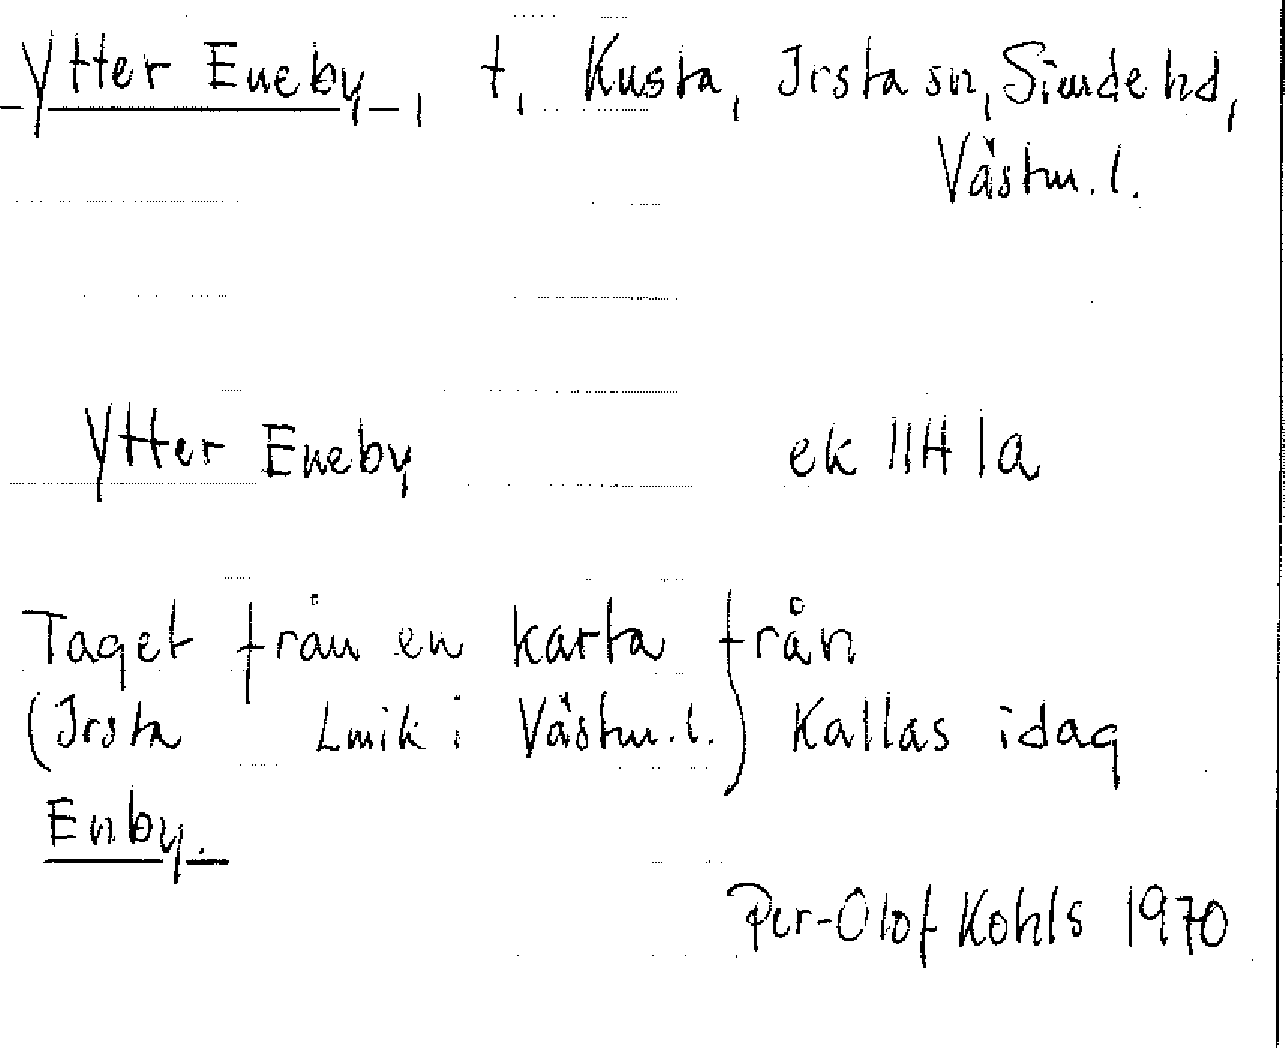 Ytter Eneby, t. Kusta, Irsta sn, Siende hd,
Västm. l.
Ytter Eneby ek 11H 1a
Taget från en karta från
(Irsta Lmik i Västm. l.) Kallas idag
Enby.
Per-Olof Kohls 1970